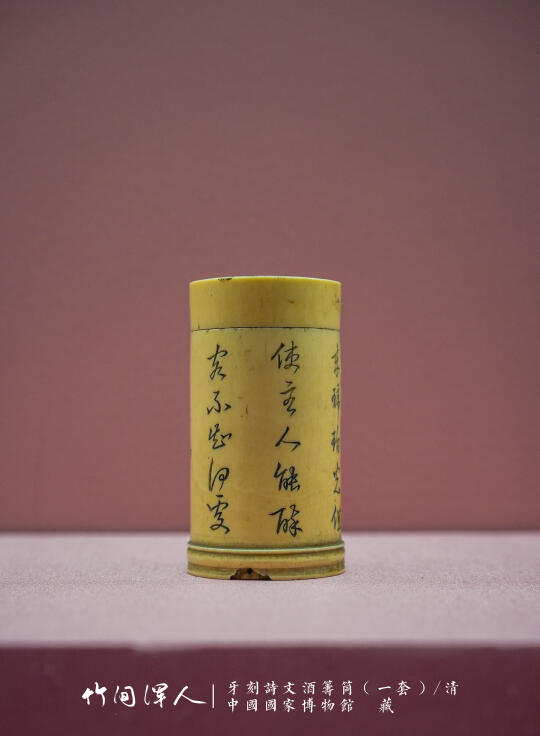 京琥珀光但
使主人能醉
客不知何處
竹间浑人
牙刻詩文酒籌筒（一套）/清
中國國家博物館 藏